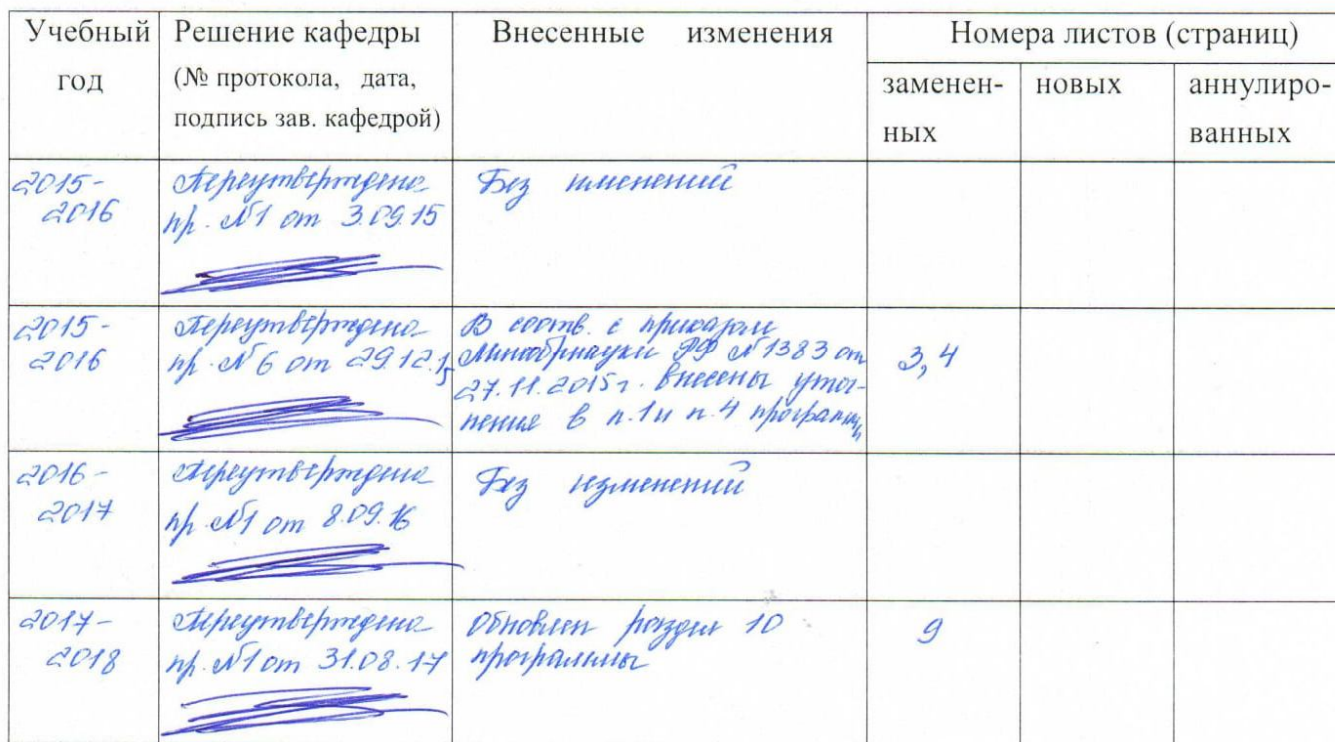 Учебный год
Решение кафедры
(№ протокола, дата,
подпись зав. кафедрой)
Внесенные изменения
Номера листов (страниц)
заменен-
ных
новых
аннулиро-
ванных
2015-
2016
Переутверждена
пр. №1 от 3.09.15
Без изменений
2015-
2016
Переутверждена
пр. №6 от 29.12.15
В соотв. с приказом
Минобрнауки РФ №1383 от
27.11.2015г. внесены уточ-
нения в п.1 и п.4 программы
3,4
2016-
2017
Переутверждена
пр. №1 от 8.09.16
Без изменений
2017-
2018
Переутверждена
пр. №1 от 31.08.17
Обновлен раздел 10
программы
9